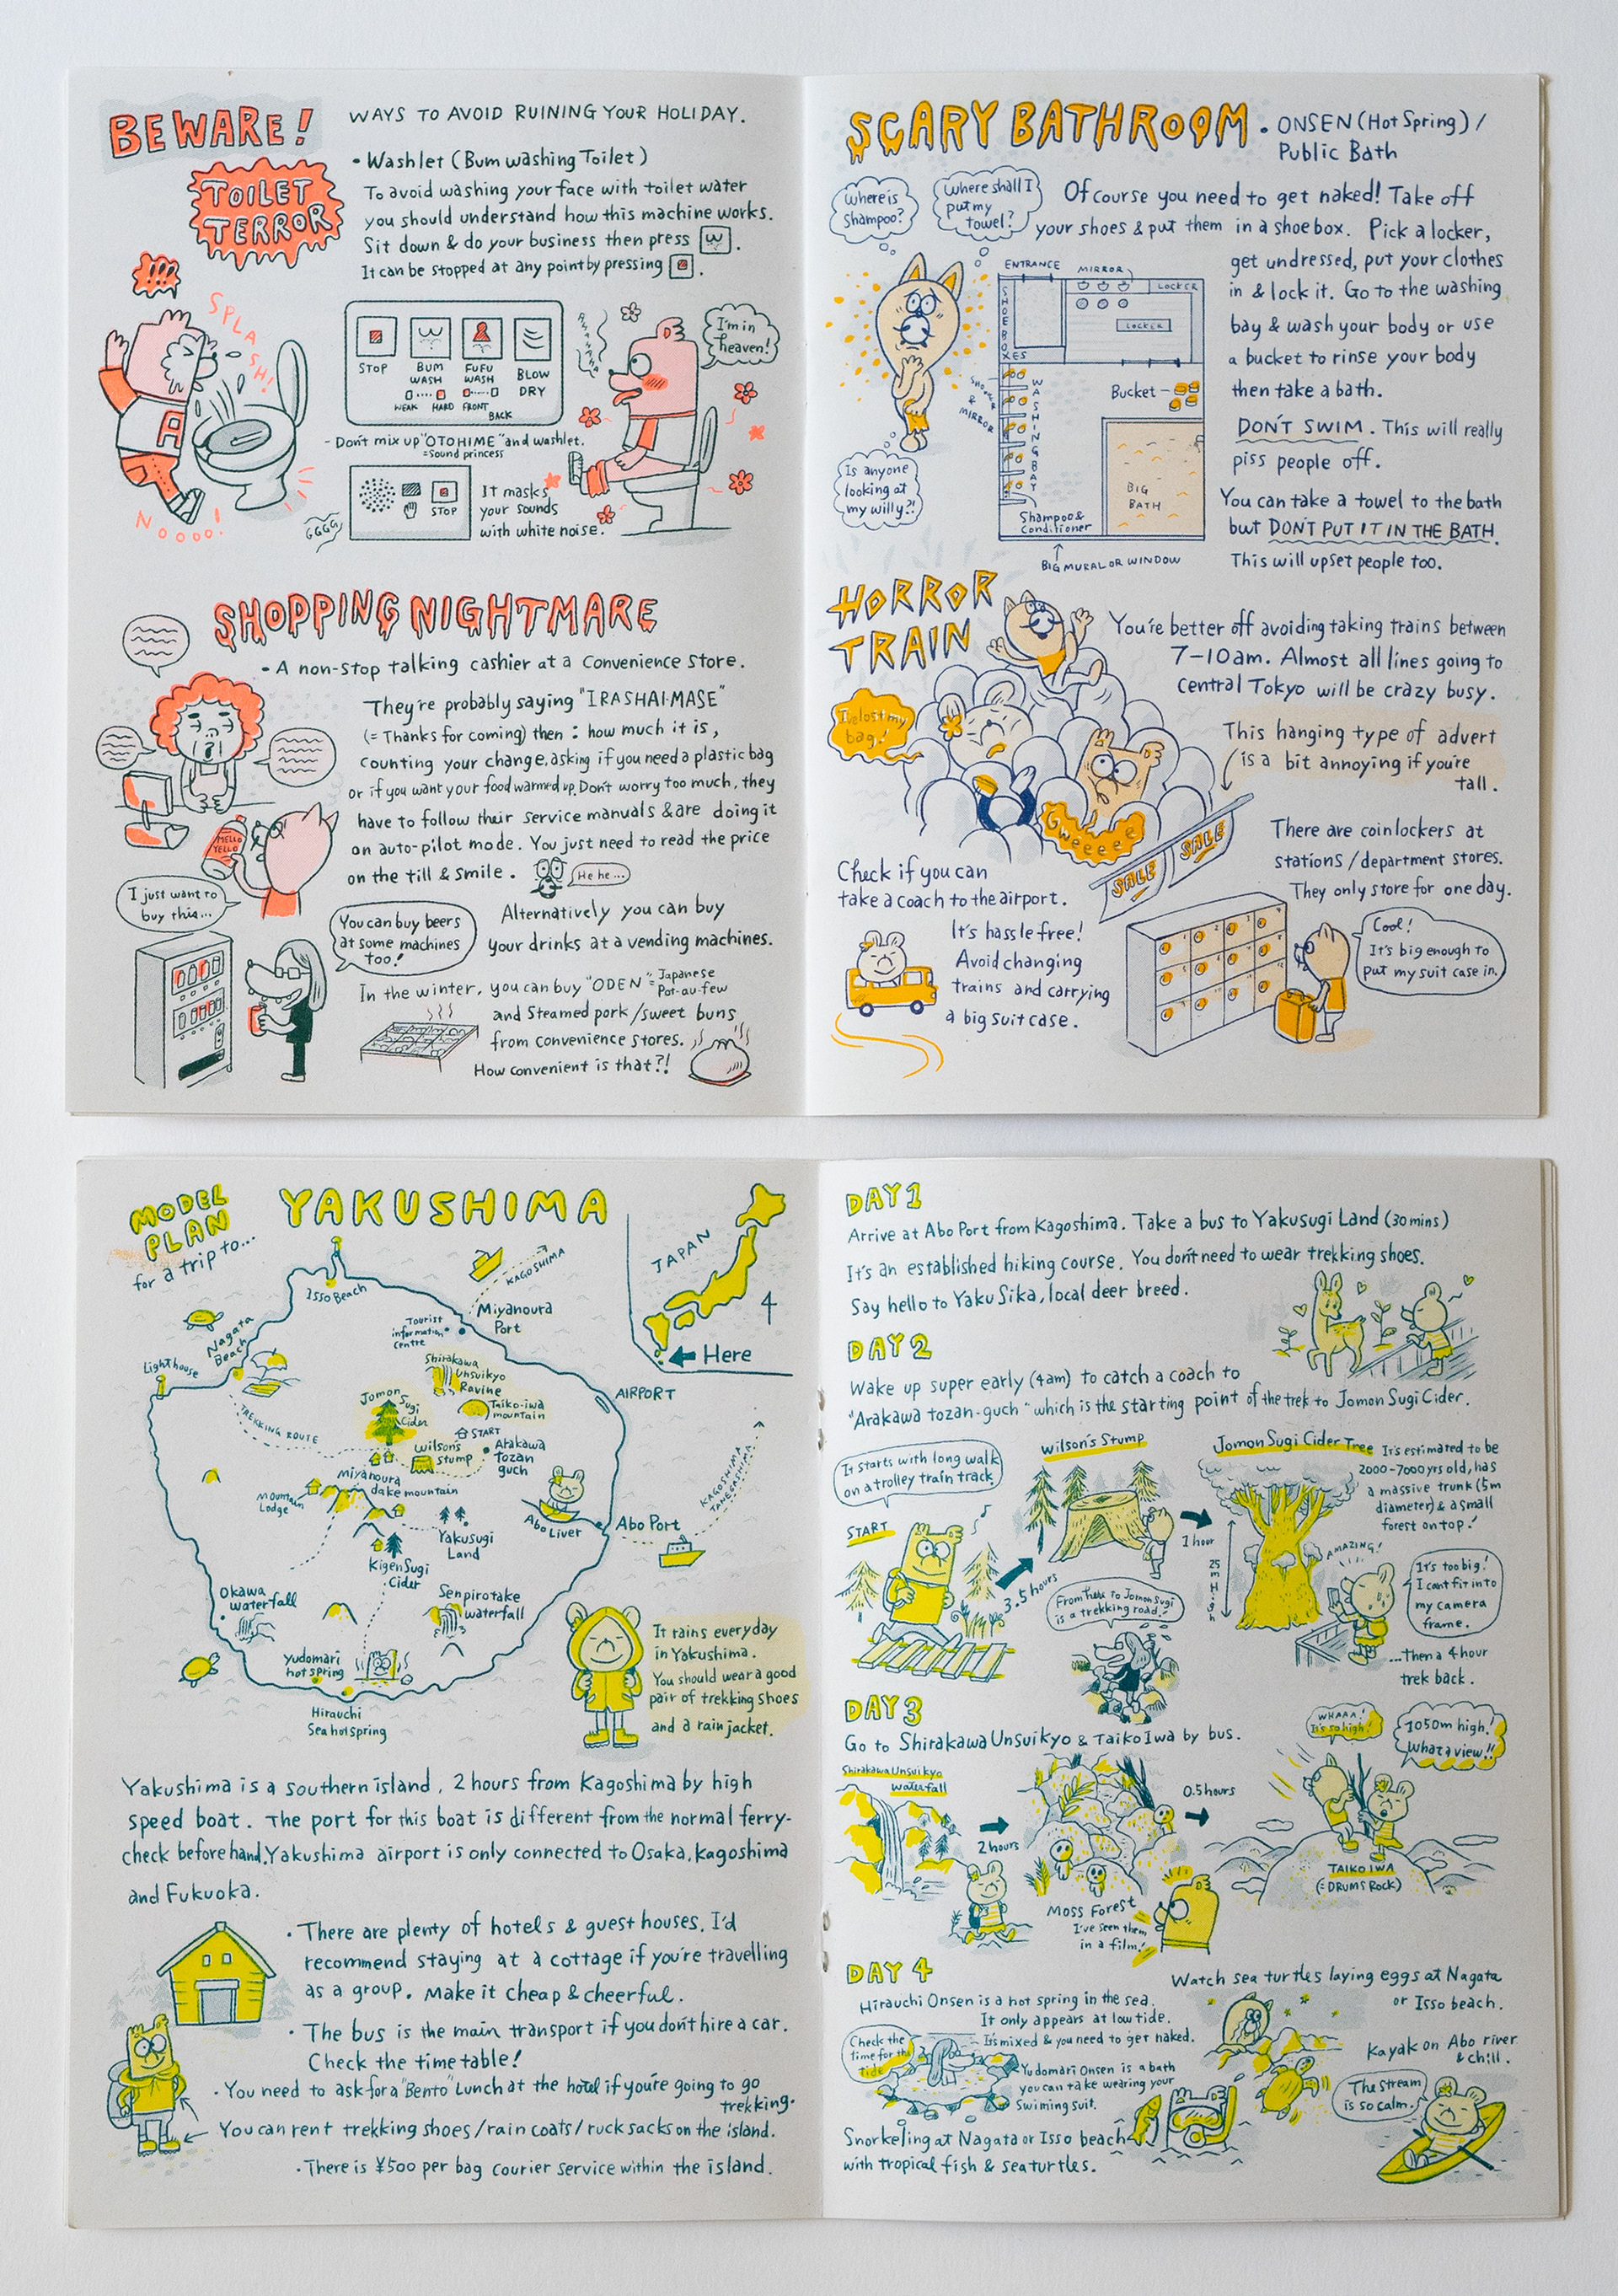 BEWARE!
WAYS TO AVOID RUINING YOUR HOLIDAY.
TOILET
TERROR
• Washlet (Bum washing Toilet)
To avoid washing your face with toilet water
you should understand how this machine works.
Sit down & do your business then press
It can be stopped at any point by pressing
SPLASH!
NOOOO!
A
STOP
BUM
WASH
WEAK HARD
FUFU
WASH
FRONT
BACK
BLOW
DRY
I'm in
heaven!
- Don't mix up "OTOHIME" and washlet.
=Sound princess
STOP
GGGG
It masks
your sounds
with white noise.
SHOPPING NIGHTMARE
• A non-stop talking cashier at a convenience store.
They're probably saying "IRASHAI-MASE"
(= Thanks for coming) then : how much it is,
counting your change, asking if you need a plastic bag
or if you want your food warmed up. Don't worry too much, they
have to follow their service manuals & are doing it
on auto-pilot mode. You just need to read the price
on the till & smile.
He he...
MELLO
YELLO
I just want to
buy this...
You can buy beers
at some machines
too!
Alternatively you can buy
your drinks at a vending machines.
In the winter, you can buy "ODEN" = Japanese
Pot-au-few
and Steamed pork/sweet buns
from convenience stores.
How convenient is that?!
SCARY BATHROOM
• ONSEN (Hot Spring) /
Public Bath
Where is
Shampoo?
Where shall I
put my
towel?
Of course you need to get naked! Take off
your shoes & put them in a shoe box. Pick a locker,
get undressed, put your clothes
in & lock it. Go to the washing
bay & wash your body or use
a bucket to rinse your body
then take a bath.
DON'T SWIM. This will really
piss people off.
You can take a towel to the bath
but DON'T PUT IT IN THE BATH.
This will upset people too.
Is anyone
looking at
my willy?!
ENTRANCE
MIRROR
LOCKER
LOCKER
SHOE BOXES
SHOWER
&
MIRROR
WASHING BAY
Bucket
BIG
BATH
Shampoo &
Conditioner
BIG MURAL OR WINDOW
HORROR
TRAIN
You're better off avoiding taking trains between
7-10am. Almost all lines going to
Central Tokyo will be crazy busy.
I've lost my
bag!
Gweeeee
This hanging type of advert
is a bit annoying if you're
tall.
SALE
SALE
Check if you can
take a coach to the airport.
It's hassle free!
Avoid changing
trains and carrying
a big suit case.
There are coin lockers at
stations / department stores.
They only store for one day.
Cool!
It's big enough to
put my suit case in.
MODEL
PLAN
for a trip to...
YAKUSHIMA
JAPAN
Here
Isso Beach
KAGOSHIMA
Miyanoura
Port
Tourist
information
centre
Nagata
Beach
Lighthouse
Shirakawa
Unsuikyo
Ravine
Taiko-iwa
mountain
AIRPORT
Jomon
Sugi
Cider
TREKKING ROUTE
START
Wilson's
Stump
Arakawa
Tozan
guch
Miyanoura
dake mountain
Mountain
Lodge
Abo Liver
Abo Port
KAGOSHIMA
TANEGASHIMA
Yakusugi
Land
Kigen Sugi
Cider
Okawa
waterfall
Senpirotake
waterfall
Yudomari
hot spring
Hirauchi
Sea hot spring
It rains everyday
in Yakushima.
You should wear a good
pair of trekking shoes
and a rain jacket.
Yakushima is a southern island, 2 hours from Kagoshima by high
speed boat. The port for this boat is different from the normal ferry-
check before hand. Yakushima airport is only connected to Osaka, Kagoshima
and Fukuoka.
• There are plenty of hotels & guest houses. I'd
recommend staying at a cottage if you're travelling
as a group. Make it cheap & cheerful.
• The bus is the main transport if you don't hire a car.
Check the time table!
• You need to ask for a "Bento" Lunch at the hotel if you're going to go
trekking.
You can rent trekking shoes/rain coats/ruck sacks on the island.
• There is ¥500 per bag courier service within the island.
DAY 1
Arrive at Abo Port from Kagoshima. Take a bus to Yakusugi Land (30 mins)
It's an established hiking course. You don't need to wear trekking shoes.
Say hello to Yaku Sika, local deer breed.
DAY 2
Wake up super early (4am) to catch a coach to
"Arakawa tozan-guch" which is the starting point of the trek to Jomon Sugi Cider.
It starts with long walk
on a trolley train track.
START
3.5 hours
Wilson's Stump
From here to Jomon Sugi
is a trekking road!
1 hour
Jomon Sugi Cider Tree
It's estimated to be
2000-7000 yrs old, has
a massive trunk (5m
diameter) & a small
forest on top!
25 m High
AMAZING!
It's too big!
I can't fit into
my camera
frame.
...Then a 4 hour
trek back.
DAY 3
Go to Shirakawa Unsuikyo & Taiko Iwa by bus.
Shirakawa Unsuikyo
waterfall
2 hours
Moss Forest
I've seen them
in a film!
0.5 hours
WHAAA!
It's so high!
1050m high!
What a view!!
TAIKO IWA
(=DRUMS ROCK)
DAY 4
Hirauchi Onsen is a hot spring in the sea.
It only appears at low tide.
It's mixed & you need to get naked.
Check the
time for the
tide
Yudomari Onsen is a bath
you can take wearing your
Swiming suit.
Snorkeling at Nagata or Isso beach
with tropical fish & sea turtles.
Watch sea turtles laying eggs at Nagata
or Isso beach.
Kayak on Abo river
& chill.
The stream
is so calm.